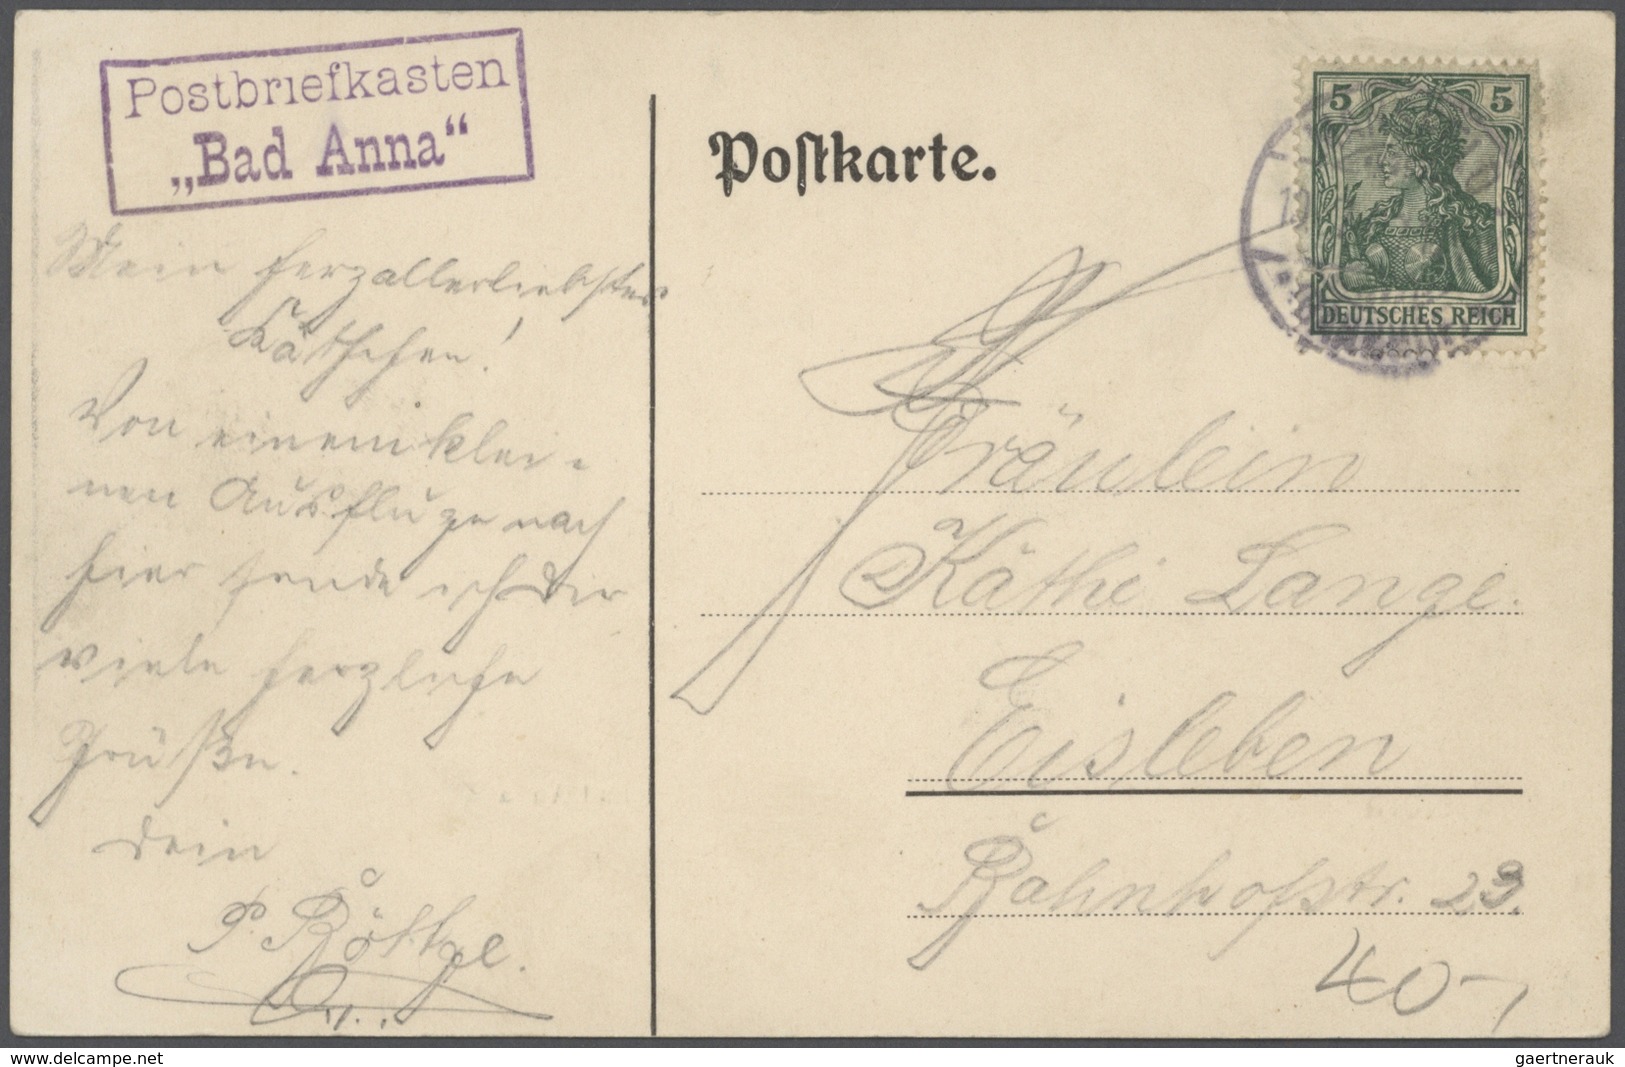 Postbriefkasten
„Bad Anna“
Mein herzallerliebstes
Käthchen!
Von einem klei-
nen Ausfluge nach
hier sende ich Dir
viele herzliche
Grüße.
Dein
P. Röttge.
Postkarte.
5 5
DEUTSCHES REICH
Fräulein
Käthe Lange.
Eisleben
Bahnhofstr. 23.
40,-
www.delcampe.net
gaertnerauk